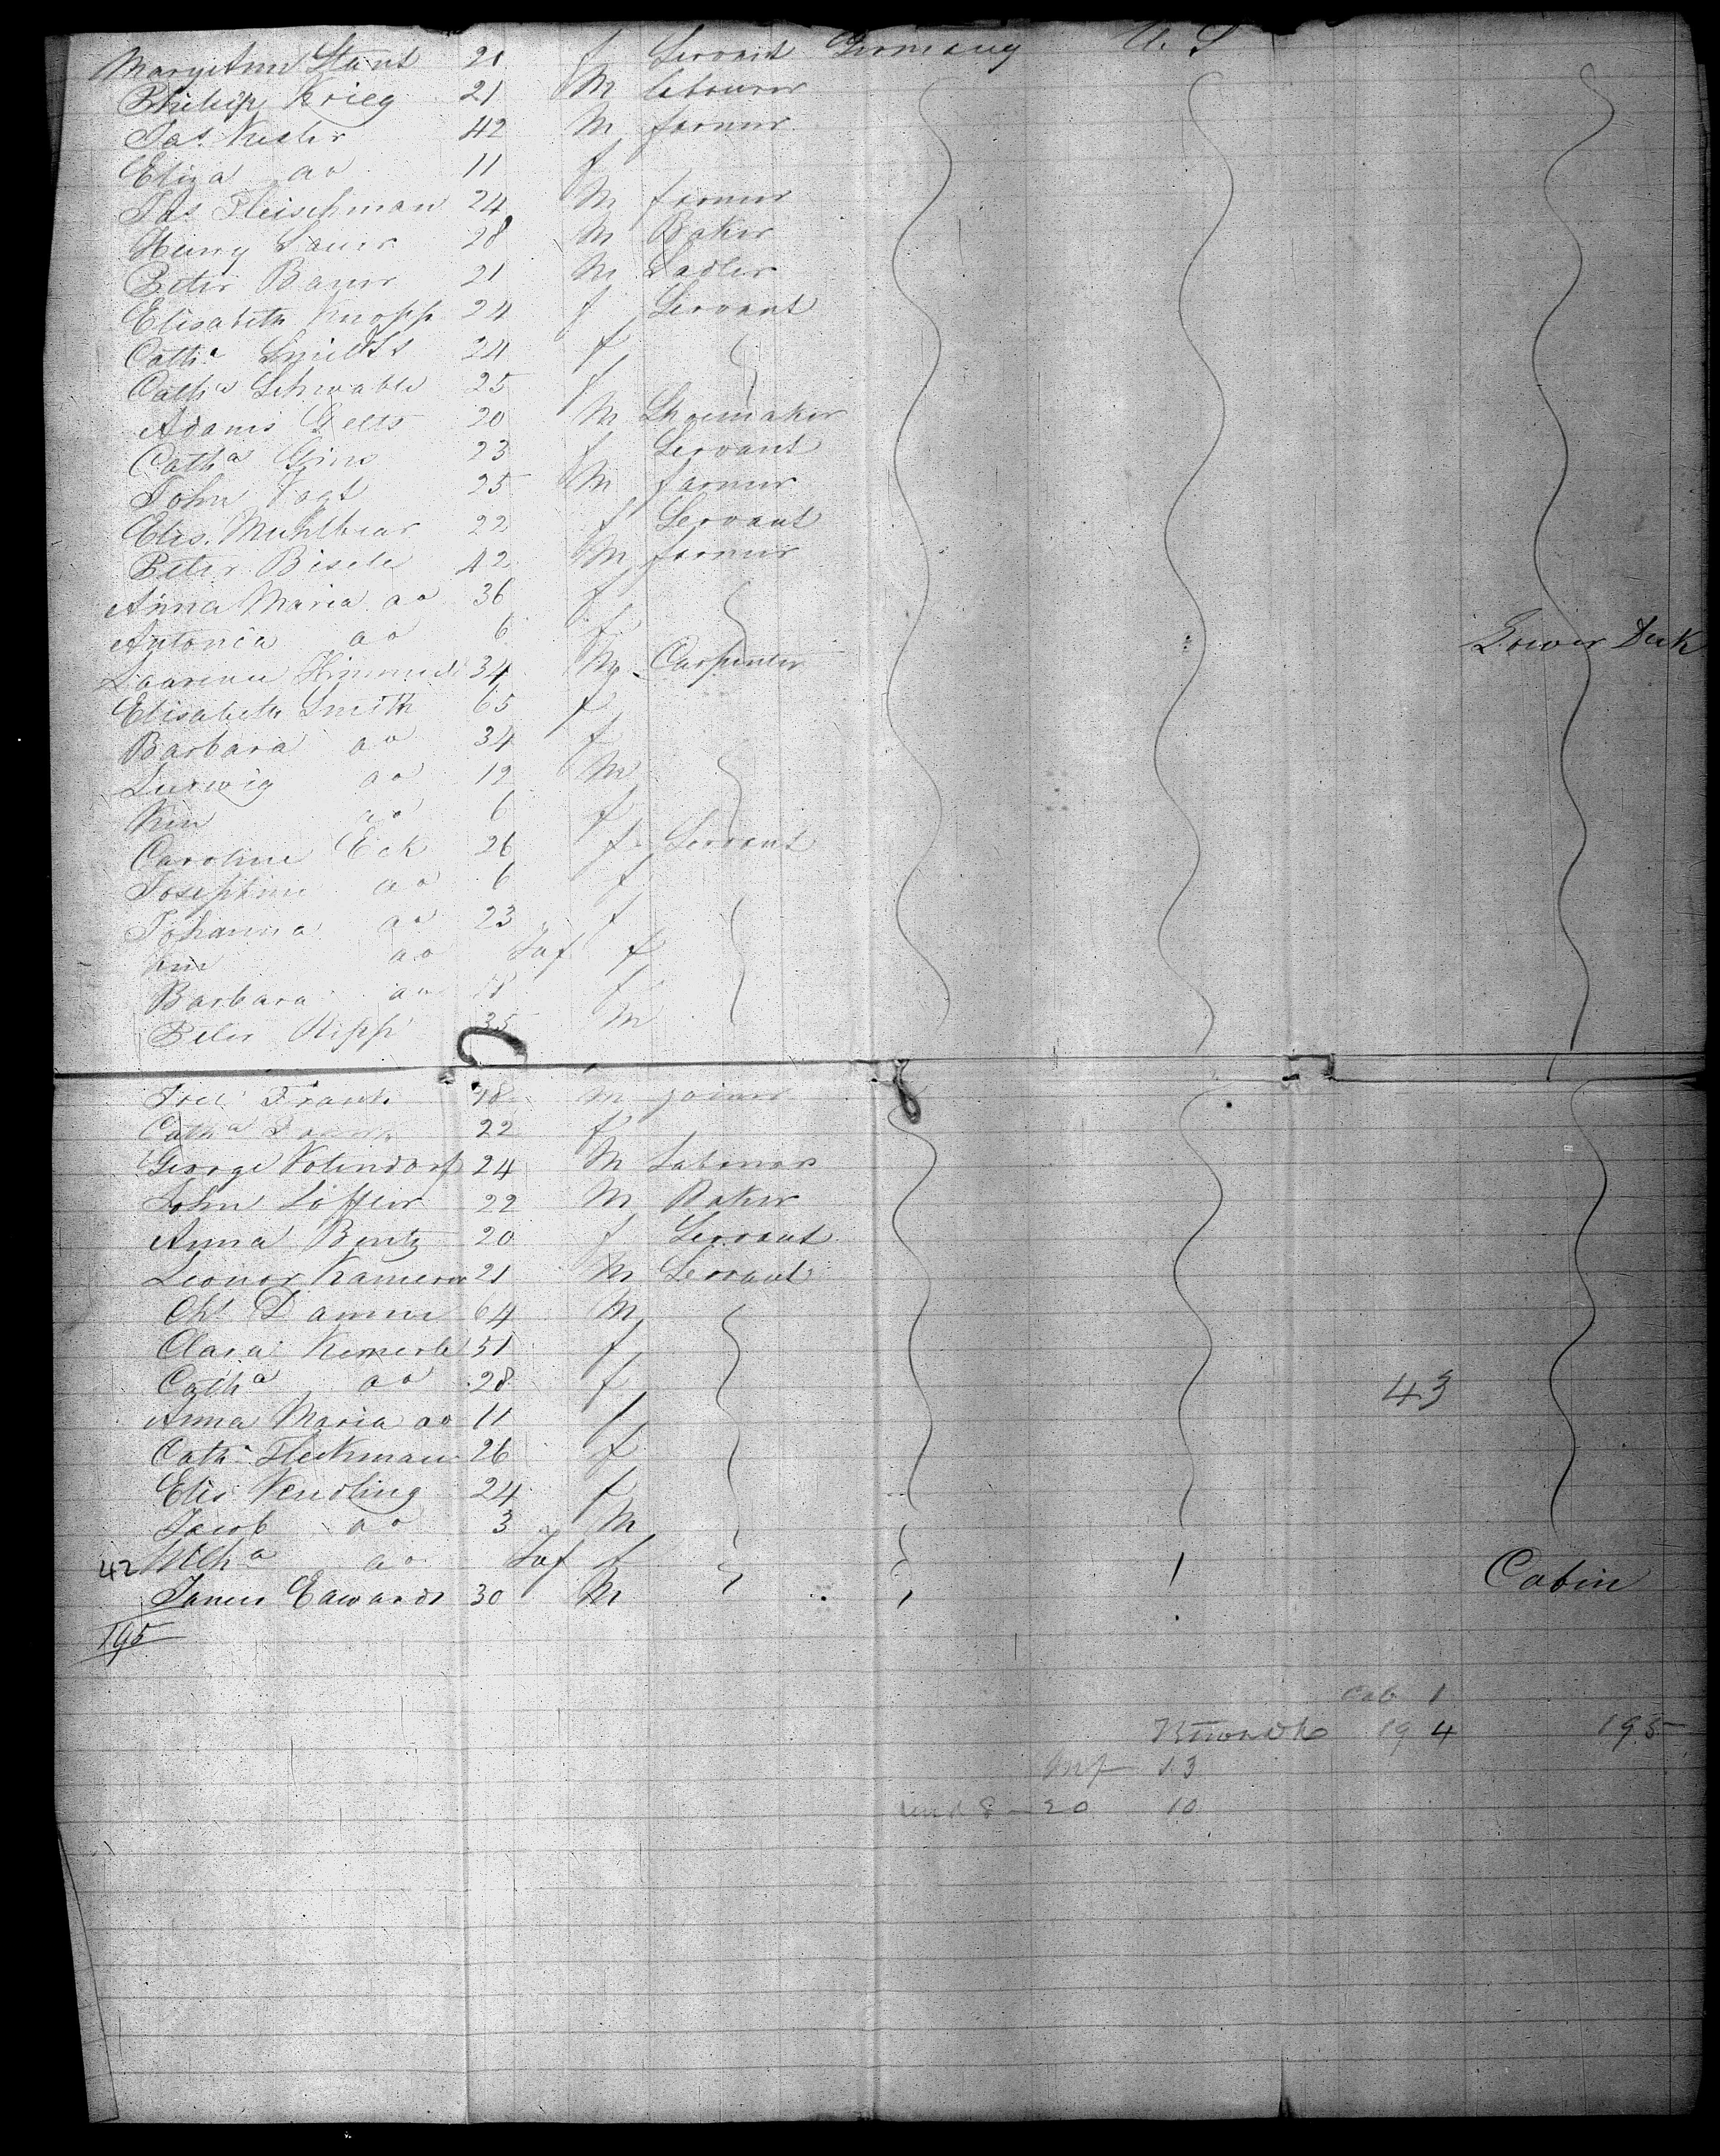 Mary Ann Stant 21 f Servant Germany U. S
Philip Krieg 21 M labourer
Jas. Kesler 42 M farmer
Eliza do 11 f
Jas Fleischman 24 M farmer
Henry Sauer 28 M Baker
Peter Bauer 21 M Sadler
Elisabeth Knopp 24 f Servant
Catha 24 f
Catha Schwable 25 f
Adam 20 M Shoemaker
Catha 23 f Servant
John Vogt 25 M farmer
Elis. Muhlbear 22 f Servant
Peter Bisele 42 M farmer
Anna Maria do 36 f
Antonia do 6 f Lower Deck
34 M Carpenter
Elisabeth Smith 65 f
Barbara do 34 f
Ludwig do 12 M
do 6 f
Caroline Eck 26 f Servant
Josephine do 6 f
Johanna do 23 f
do Inf f
Barbara do 18 f
Peter Ripp 35 M
Frank 48 M joiner
Catha 22 f
George Kolendorf 24 M Labourer
John Löffler 22 M Baker
Anna Bentz 20 f Servant
Leonor Kamerer 21 M Servant
Cht Damm 64 M
Clara Kemerle 51 f
Catha do 28 f 43
Anna Maria do 11 f
Cath Fleckman 26 f
Elis Kendling 24 f
Jacob do 3 M
42 Wilha do Inf f
James Edwards 30 M Cabin
195
Cab 1
194 195
Inf 13
20 10